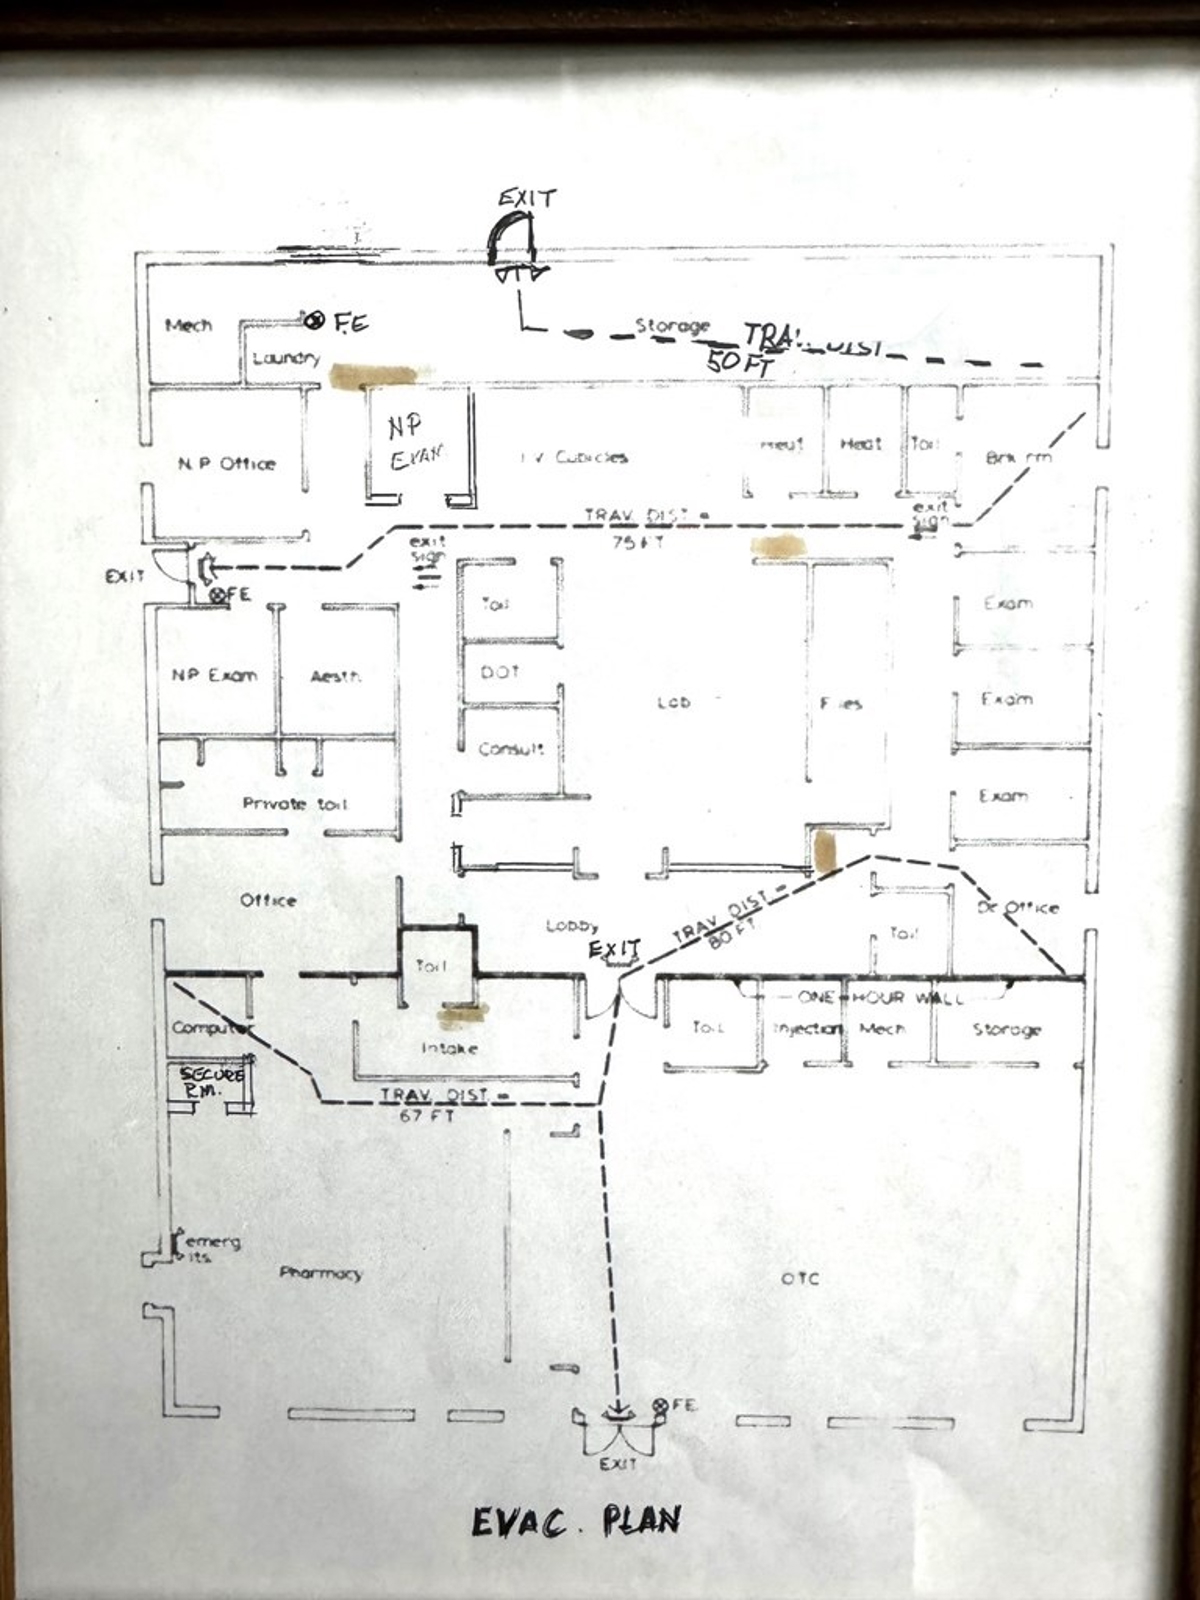 EXIT
Mech
F.E
Laundry
Storage
TRAV. DIST
50 FT
N.P. Office
NP
I.V. Cubicles
Heat
Toil
Brk rm
TRAV. DIST. =
75 FT
exit
sign
exit
sign
EXIT
FE
NP Exam
Aesth.
Toil
DOT
Consult
Lab
Files
Exam
Exam
Exam
Private toil
Office
Lobby
EXIT
TRAV. DIST =
80 FT
Toil
Dr. Office
Toil
ONE-HOUR WALL
Computer
Intake
Toil
Injection
Mech
Storage
SECURE
RM.
TRAV. DIST. =
67 FT
emerg
lts.
Pharmacy
OTC
FE
EXIT
EVAC. PLAN